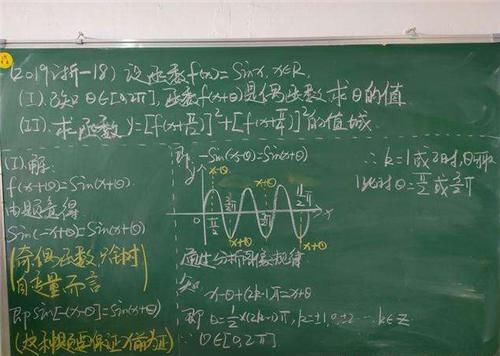 (2019浙-18) 设函数f(x)=Sinx, x∈R.
(I).已知θ∈[0,2π],函数f(x+θ)是偶函数,求θ的值
(II).求函数 y=[f(x+π/12)]²+[f(x+π/4)]²的值域.
(I).解:
f(x+θ)=Sin(x+θ)
由题意得
Sin(-x+θ)=Sin(x+θ)
(奇偶函数 针对
自变量而言)
即Sin[-(x-θ)]=Sin(x+θ)
即 -Sin(x-θ)=Sin(x+θ)
y
x-θ
x+θ
x+θ
x+θ
0
π/2
x
通过分析图象规律
知
x-θ+(2k-1)π=x+θ
即 θ=1/2×(2k-1)π, k=±1,0,±2…k∈Z
∵θ∈[0,2π]
∴k=1或2时,
此时θ=π/2或3/2π